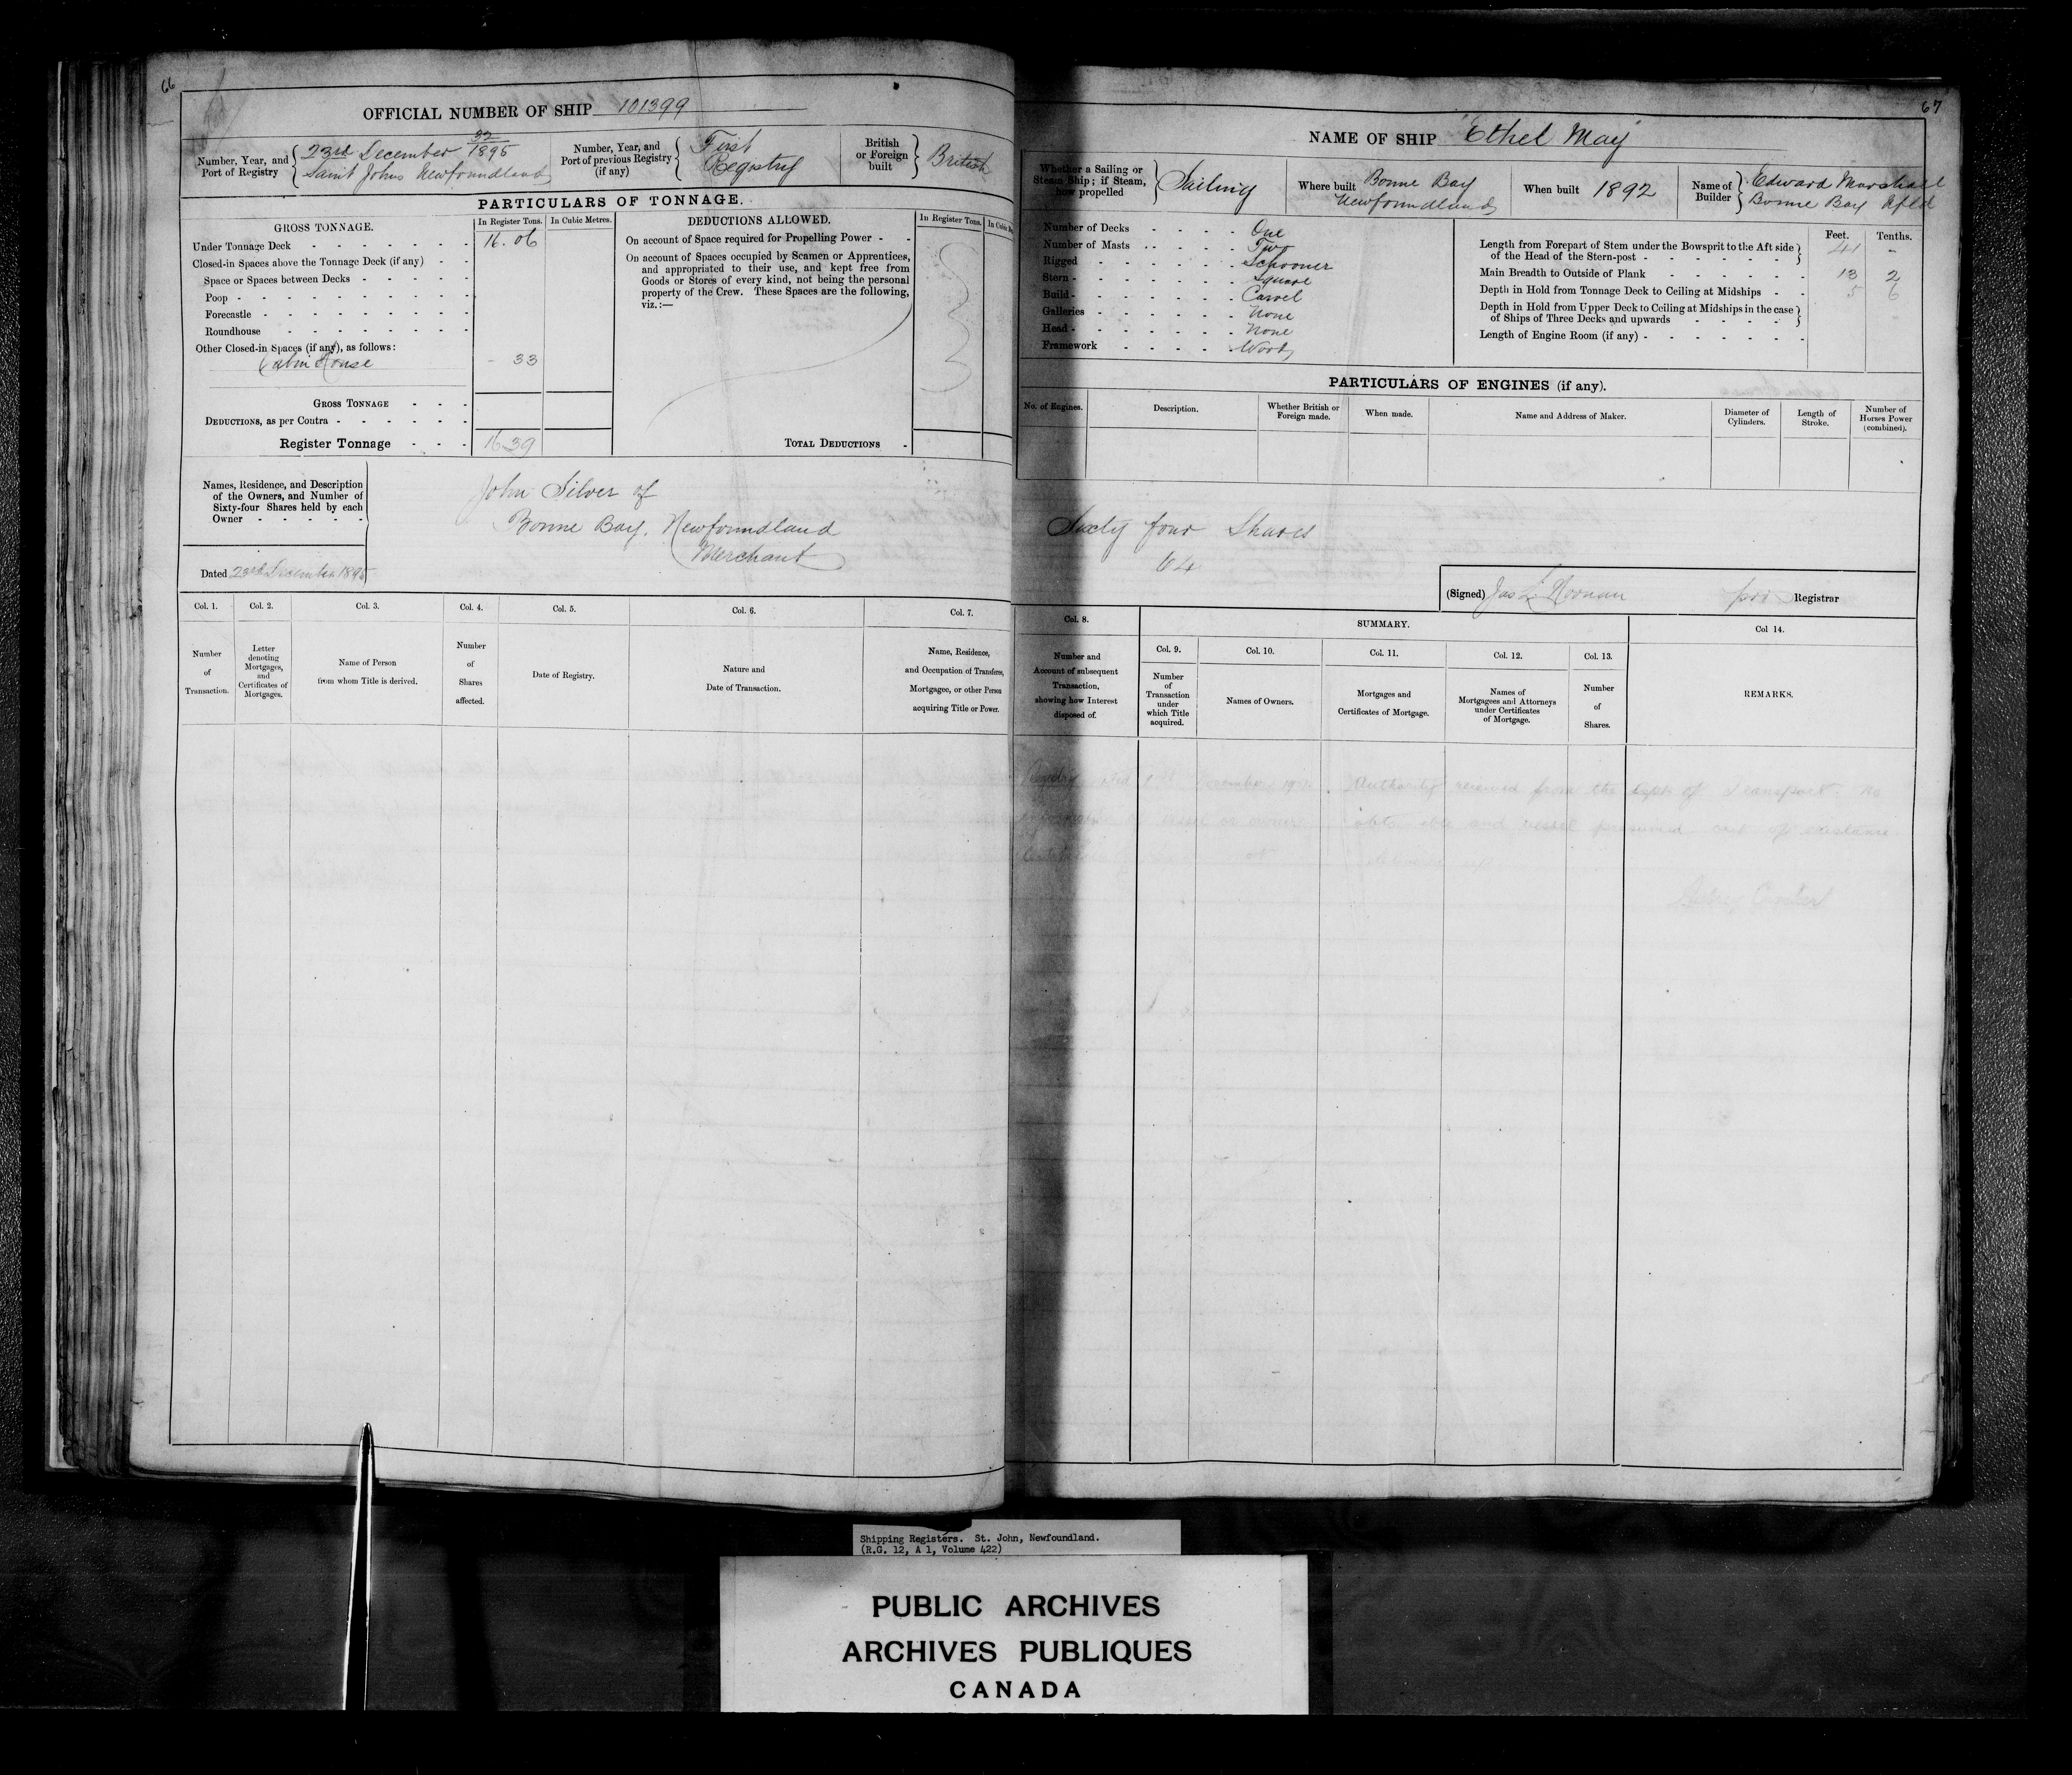 66
OFFICIAL NUMBER OF SHIP 101399
Number, Year, and Port of Registry
32
23rd December 1895
Saint Johns Newfoundland
Number, Year, and Port of previous Registry (if any)
First Registry
British or Foreign built
British
PARTICULARS OF TONNAGE.
GROSS TONNAGE.
In Register Tons.
In Cubic Metres.
Under Tonnage Deck - - - - - - - 16.06
Closed-in Spaces above the Tonnage Deck (if any) - -
Space or Spaces between Decks - - - - -
Poop - - - - - - - - - -
Forecastle - - - - - - - - -
Roundhouse - - - - - - - -
Other Closed-in Spaces (if any), as follows:
Cabin House - 33
GROSS TONNAGE - - -
DEDUCTIONS, as per Contra - - - - - -
Register Tonnage - - - 16.39
DEDUCTIONS ALLOWED.
In Register Tons.
On account of Space required for Propelling Power - -
On account of Spaces occupied by Seamen or Apprentices,
and appropriated to their use, and kept free from
Goods or Stores of every kind, not being the personal
property of the Crew. These Spaces are the following,
viz.:—
TOTAL DEDUCTIONS -
Names, Residence, and Description
of the Owners, and Number of
Sixty-four Shares held by each
Owner - - - - -
Dated 23rd December 1895
John Silver of
Bonne Bay, Newfoundland
Merchant
Col. 1.
Number
of
Transaction.
Col. 2.
Letter
denoting
Mortgages,
and
Certificates of
Mortgages.
Col. 3.
Name of Person
from whom Title is derived.
Col. 4.
Number
of
Shares
affected.
Col. 5.
Date of Registry.
Col. 6.
Nature and
Date of Transaction.
Col. 7.
Name, Residence,
and Occupation of Transferee,
Mortgagee, or other Person
acquiring Title or Power.
67
NAME OF SHIP "Ethel May"
Whether a Sailing or
Steam Ship; if Steam,
how propelled
Sailing
Where built
Bonne Bay
Newfoundland
When built 1892
Name of Builder
Edward Marshall
Bonne Bay Nfld
Number of Decks - - - - One
Number of Masts - - - - - Two
Rigged - - - - - - Schooner
Stern - - - - - - - Square
Build - - - - - - - Carvel
Galleries - - - - - - None
Head - - - - - - - None
Framework - - - - Wood
Feet. Tenths.
Length from Forepart of Stem under the Bowsprit to the Aft side
of the Head of the Stern-post - - - - - - 41 -
Main Breadth to Outside of Plank - - - - - - 13 2
Depth in Hold from Tonnage Deck to Ceiling at Midships - - 5 6
Depth in Hold from Upper Deck to Ceiling at Midships in the case
of Ships of Three Decks and upwards - - - - -
Length of Engine Room (if any) - - - - - - -
PARTICULARS OF ENGINES (if any).
No. of Engines.
Description.
Whether British or
Foreign made.
When made.
Name and Address of Maker.
Diameter of
Cylinders.
Length of
Stroke.
Number of
Horses Power
(combined).
Sixty four Shares
64
(Signed) Jas L. Noonan pro Registrar
Col. 8.
Number and
Account of subsequent
Transaction,
showing how Interest
disposed of.
SUMMARY.
Col. 9.
Number
of
Transaction
under
which Title
acquired.
Col. 10.
Names of Owners.
Col. 11.
Mortgages and
Certificates of Mortgage.
Col. 12.
Names of
Mortgagees and Attorneys
under Certificates
of Mortgage.
Col. 13.
Number
of
Shares.
Col 14.
REMARKS.
Authority received from the Dept of Transport. No
vessel or owner and vessel presumed out of existence
Shipping Registers. St. John, Newfoundland.
(R.G. 12, A 1, Volume 422)
PUBLIC ARCHIVES
ARCHIVES PUBLIQUES
CANADA